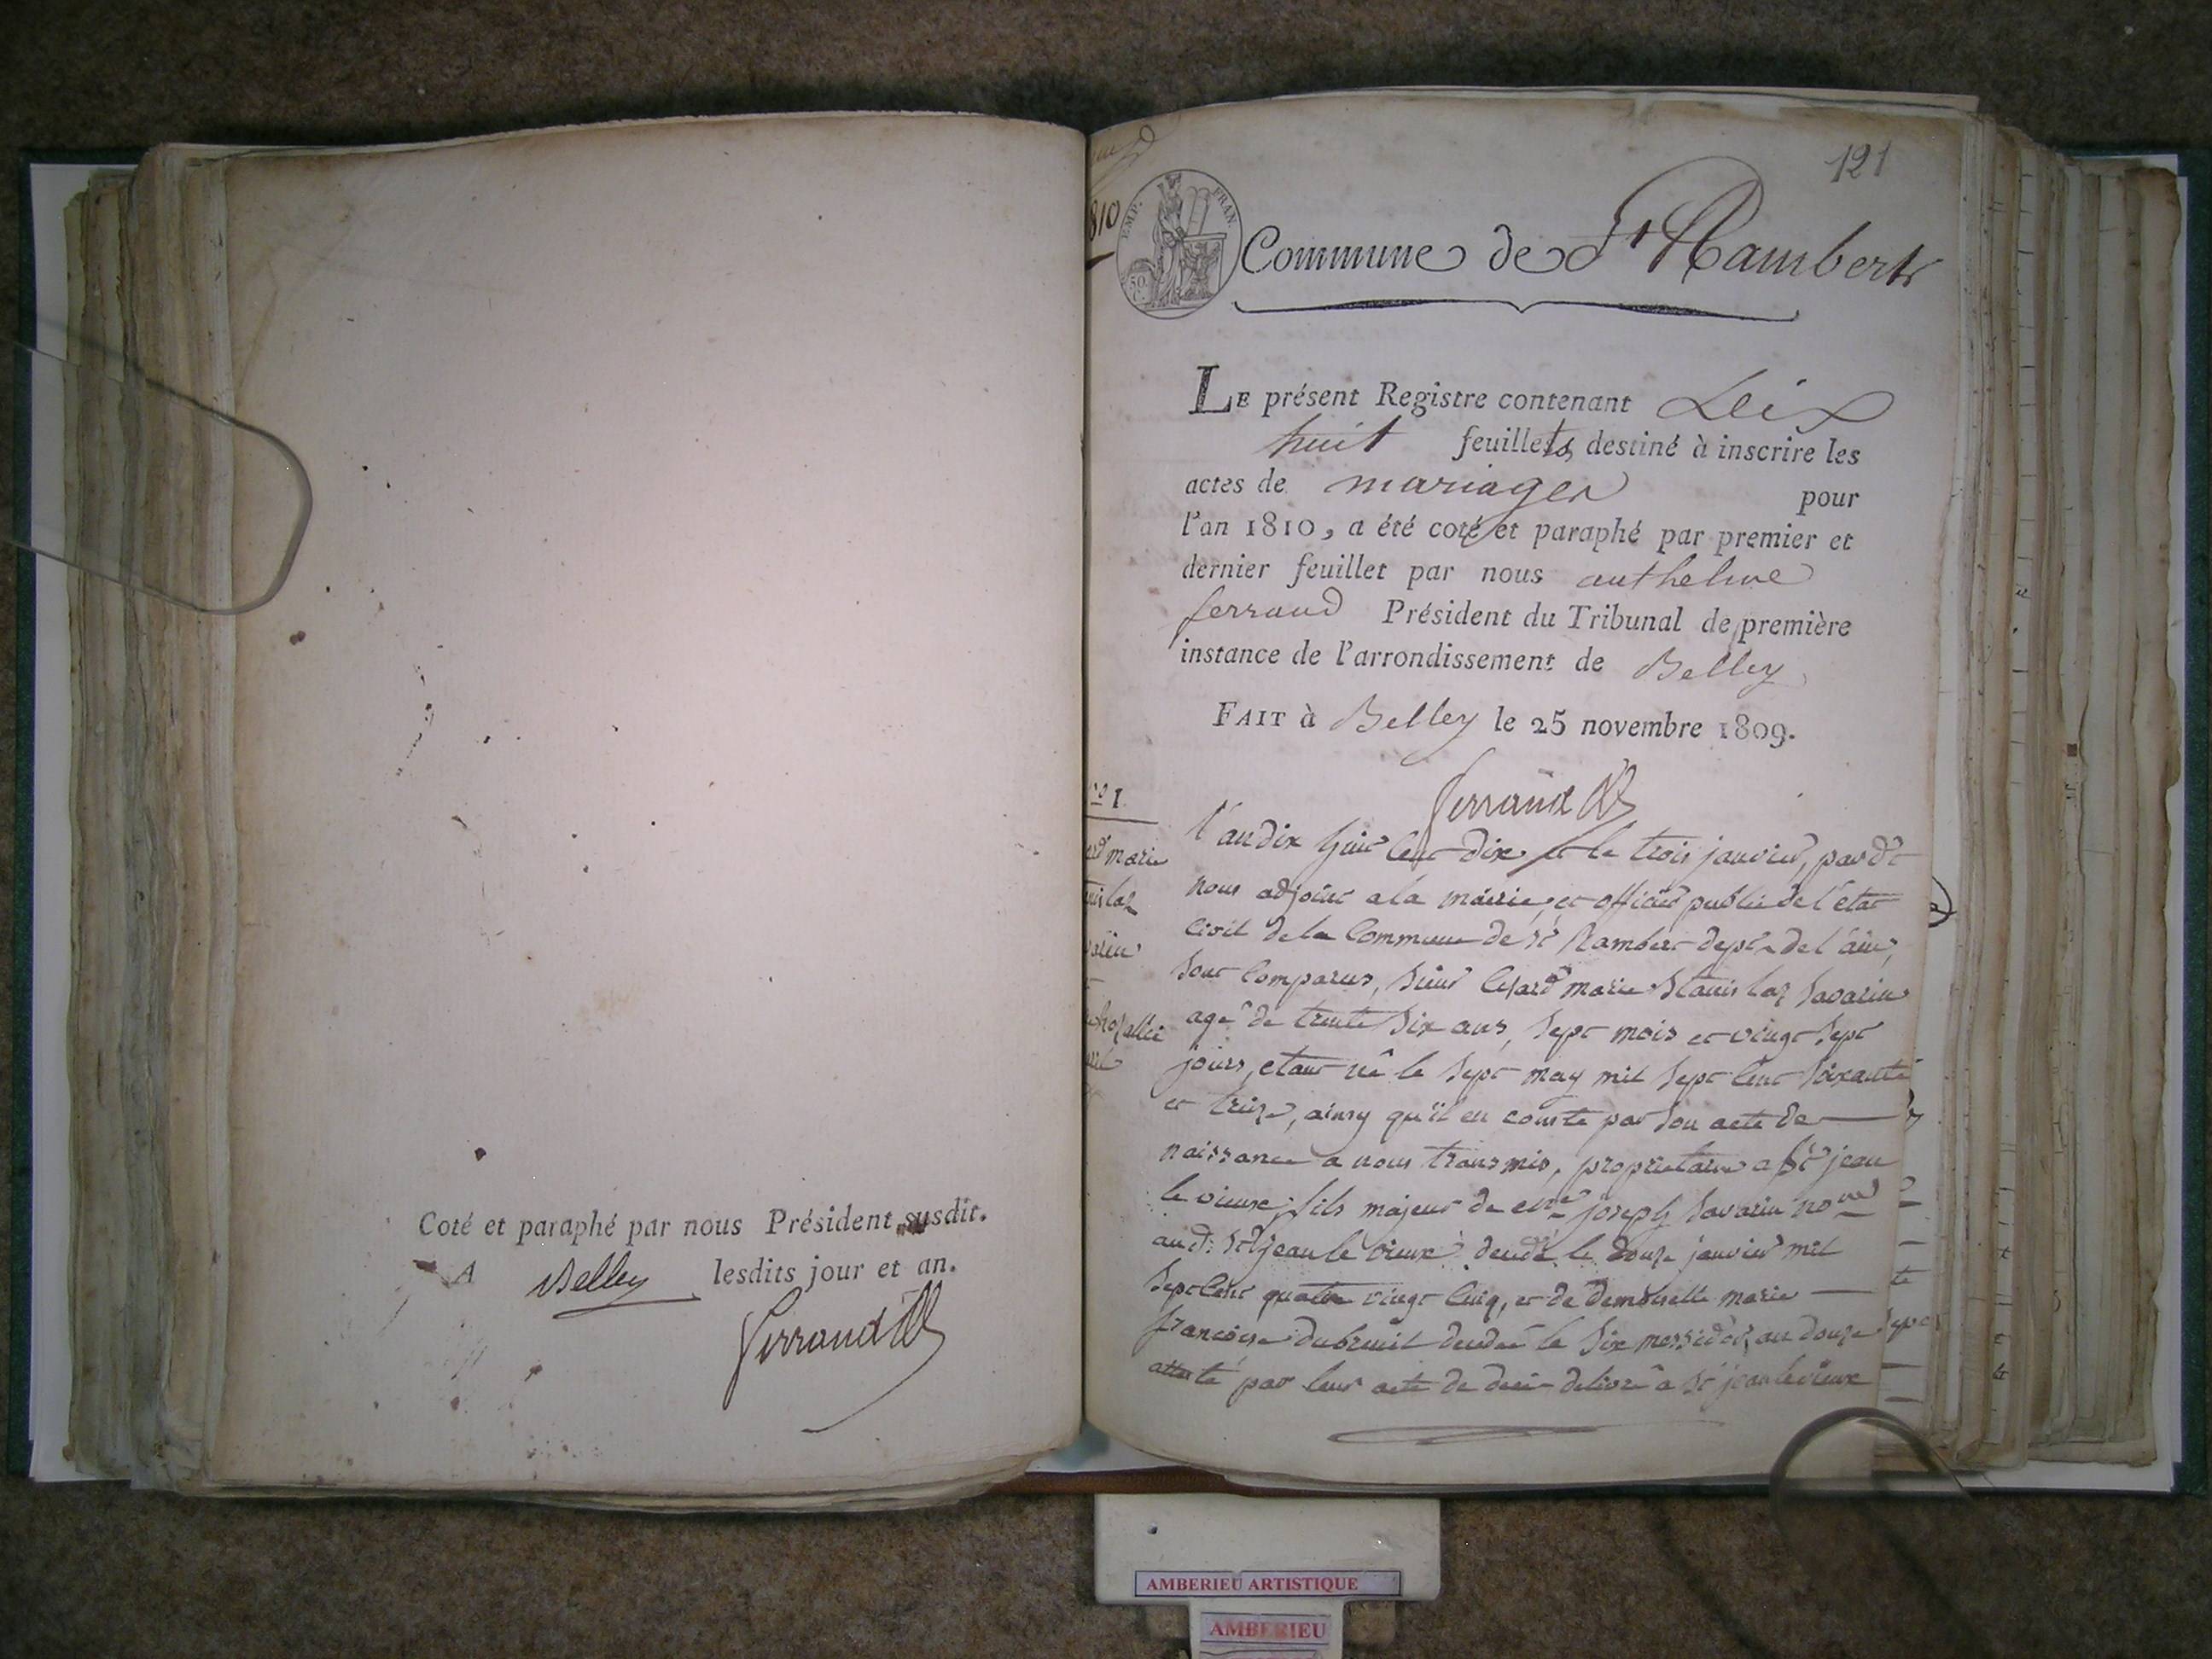 Coté et paraphé par nous Président susdit.
A Belley lesdits jour et an.
Ferrand
121
810
EMP. FRAN.
50 C.
Commune de St Rambert
LE présent Registre contenant Dix
huit feuillets destiné à inscrire les
actes de mariages pour
l'an 1810, a été coté et paraphé par premier et
dernier feuillet par nous anthelme
ferrand Président du Tribunal de première
instance de l'arrondissement de Belley
FAIT à Belley le 25 novembre 1809.
Ferrand
no 1.
marie
l'an dix huit cent dix et le trois janvier, pardt
nous adjoint a la mairie, et officier public de l'état
civil de la Commune de St Rambert dept de l'ain,
sont comparus, sieur Cesard marie Stanislas Savarin
agé de trente six ans, sept mois et vingt sept
jours, etant né le sept may mil sept cent soixante
et treize, ainsy qu'il en conste par son acte de
naissance a nous transmis, proprietaire a St jean
le vieux, fils majeur de joseph Savarin
aud: St jean le vieux décédé le douze janvier mil
sept cent quatre vingt cinq, et de demoiselle marie
françoise dubreuil décédée le six messidor, an douze
attesté par leur acte de decès delivré à St jean le vieux
AMBERIEU ARTISTIQUE
AMBERIEU